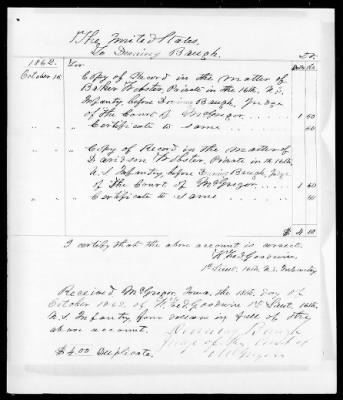 The United States,
To Downing Baugh. Dr.
1862. Dolls. Cts.
October 18 For
Copy of Record in the matter of
Baker Webster, Private in the 16th. U.S.
Infantry, before Downing Baugh, Judge
of the Court of McGregor. 1 50
" Certificate to same 50
" Copy of Record in the matter of
Davidson Webster, Private in the 16th,
U.S. Infantry, before Downing Baugh, Judge
of The Court of McGregor. 1 50
" Certificate to same 50
$ 4.00
I certify that the above account is correct.
Goodwin,
1st Lieut. 16th, U.S. Infantry
Received McGregor, Iowa, the 18th, day of
October 1862, of Goodwin 1st Lieut, 16th,
U.S. Infantry, four dollars in full of the
above account.
Downing Baugh
$4.00 Duplicate. Judge of the Court of
McGregor